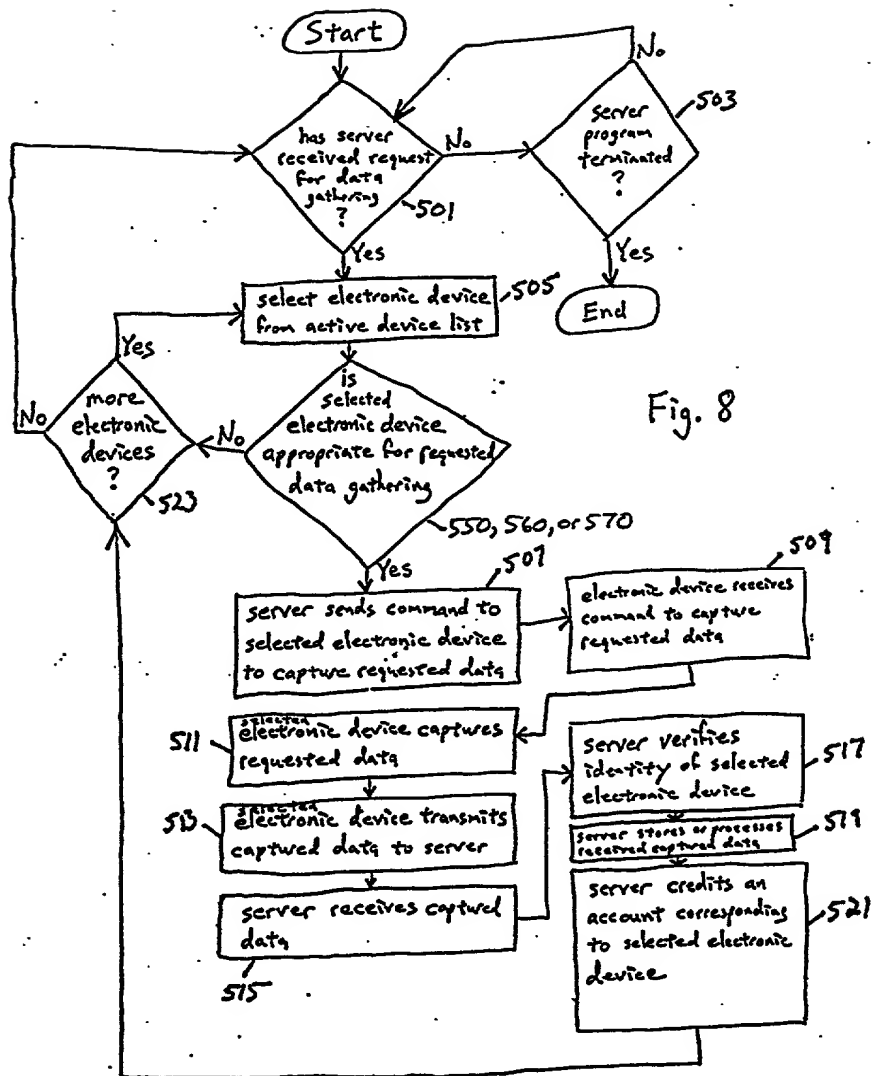 Start
No
503
server
program
terminated
?
has server
received request
for data
gathering
?
No
501
Yes
Yes
End
505
select electronic device
from active device list
Yes
is
selected
electronic device
appropriate for requested
data gathering
No
more
electronic
devices
?
No
523
Fig. 8
550, 560, or 570
Yes
507
server sends command to
selected electronic device
to capture requested data
509
electronic device receives
command to capture
requested data
511
selected
electronic device captures
requested data
513
selected
electronic device transmits
captured data to server
server receives captured
data
515
server verifies
identity of selected
electronic device
517
server stores or processes
received captured data
519
server credits an
account corresponding
to selected electronic
device
521